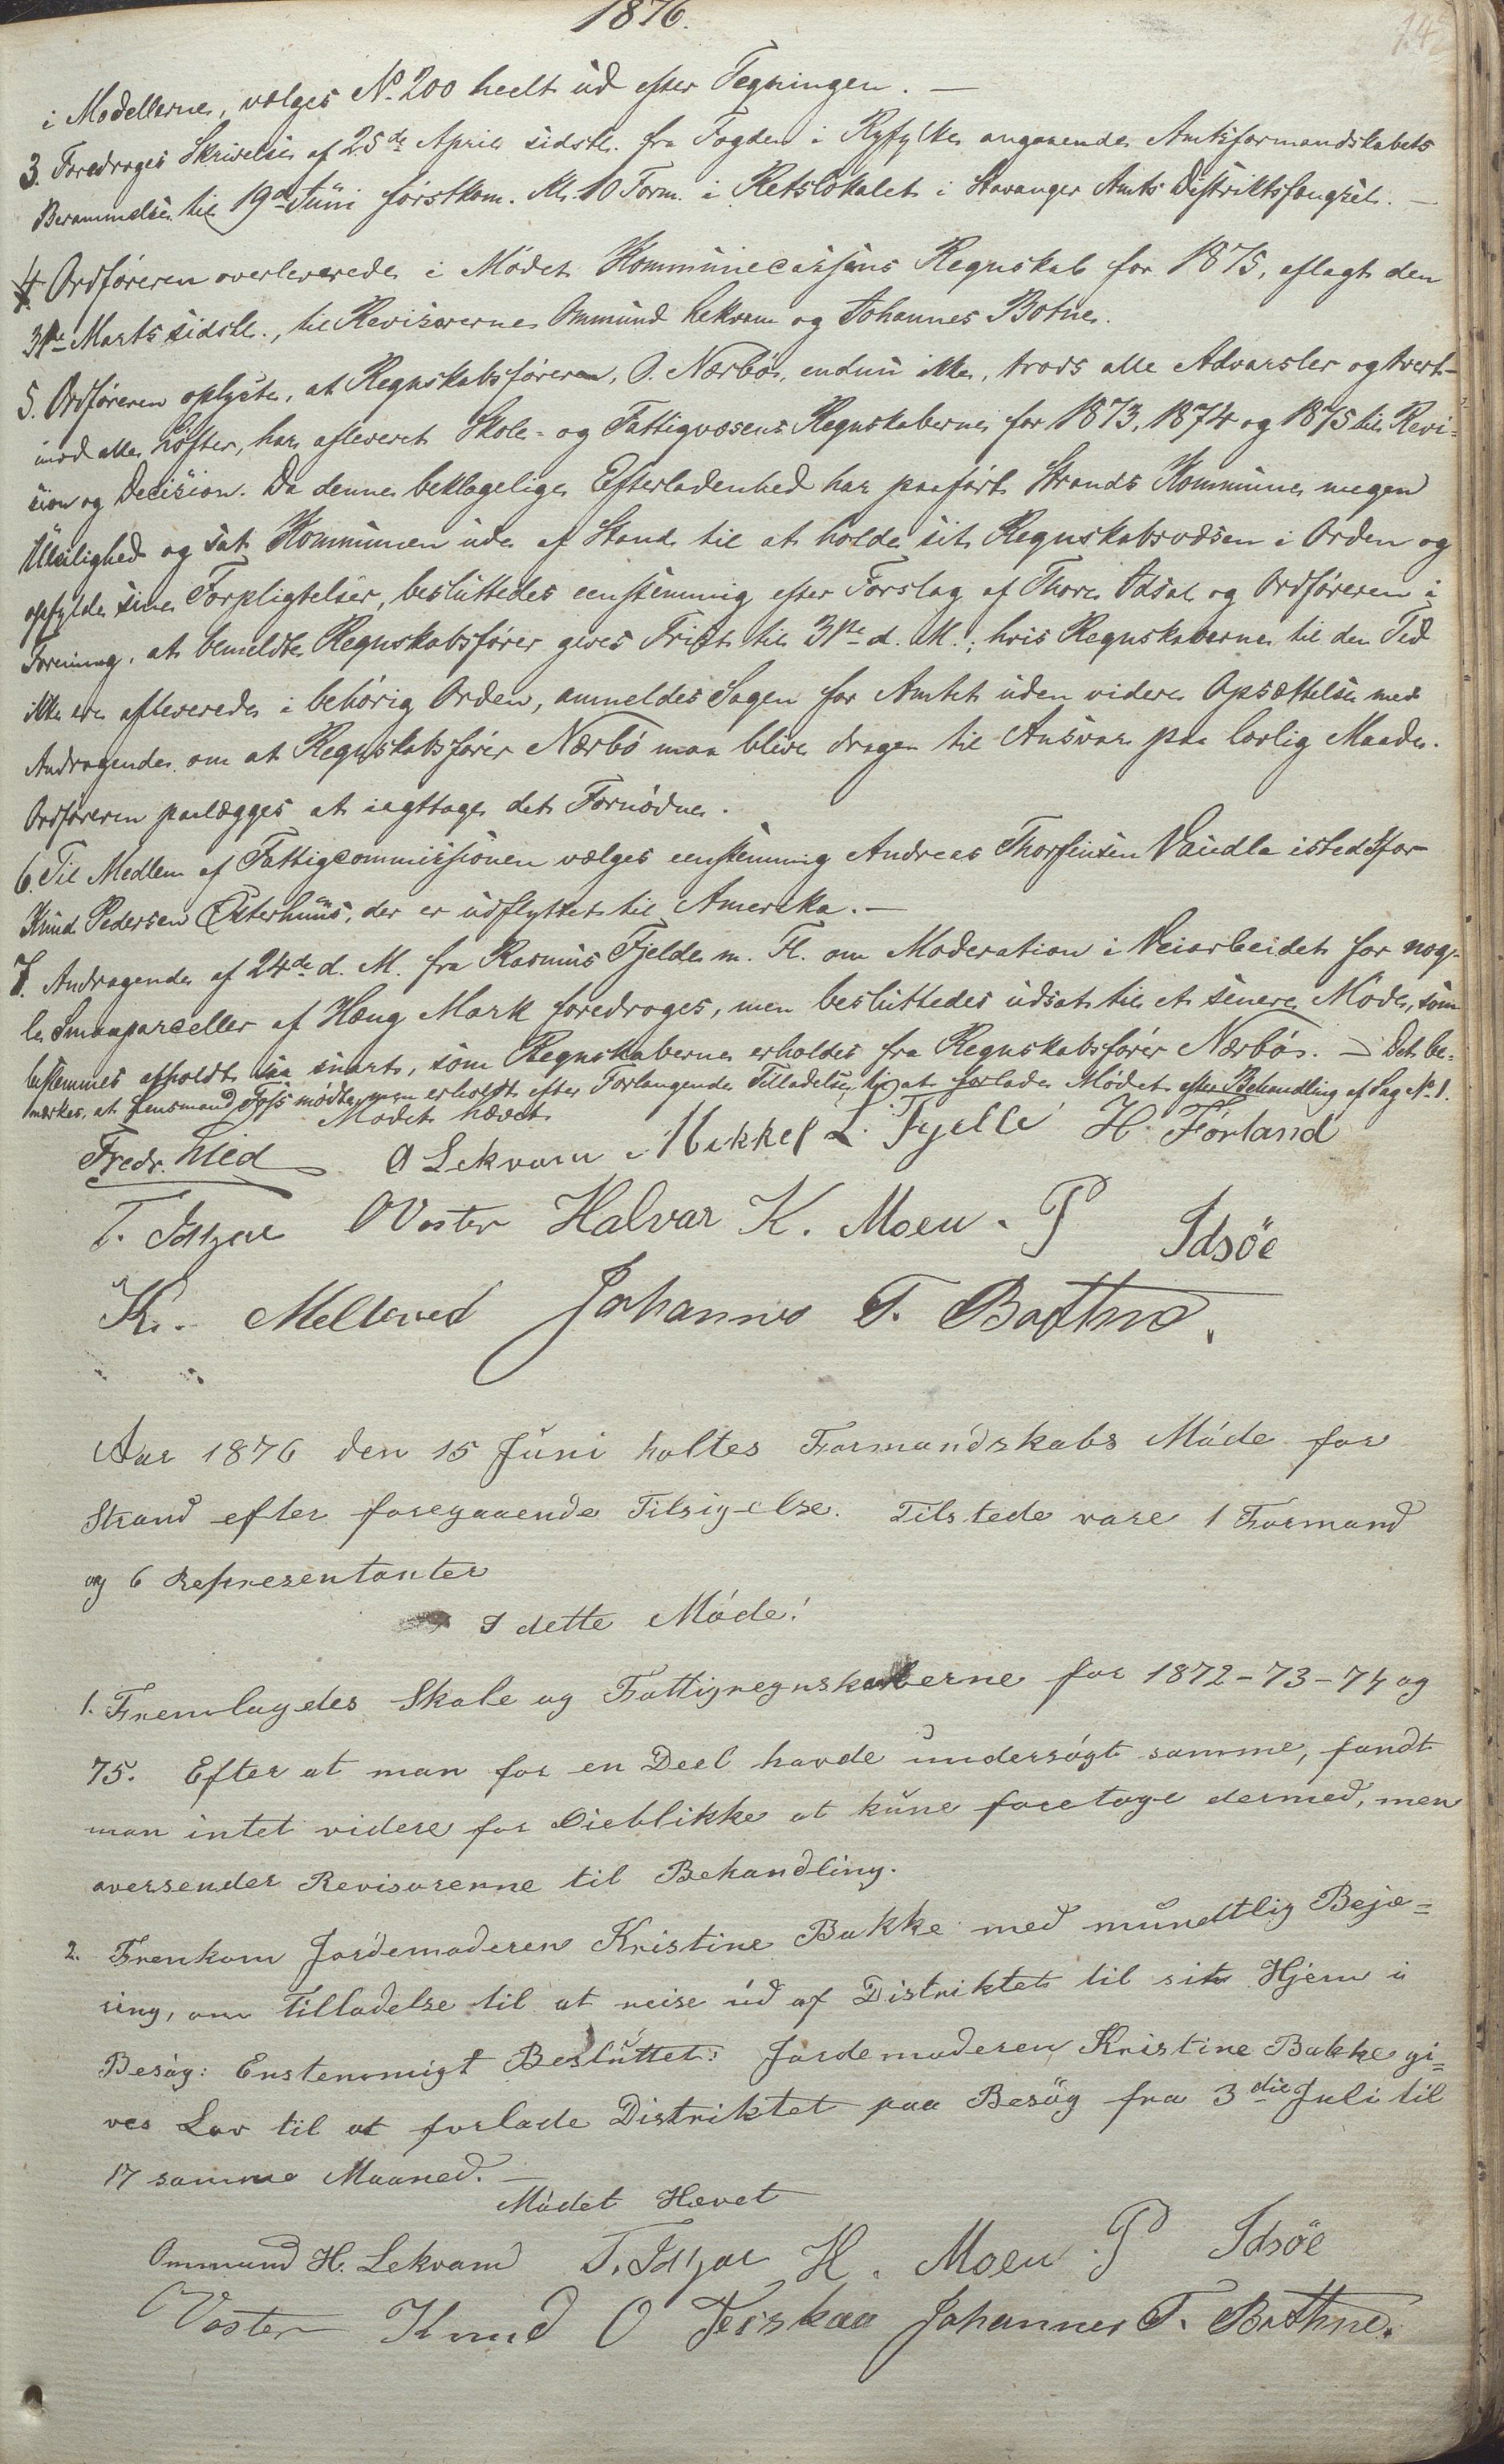 1876.
145
i Modellerne, vælges No. 200 heelt ud efter Tegningen. —
3. Foredroges Skrivelse af 25de April sidstl. fra Fogden i Ryfylke angaaende Amtsformandskabets
Berammelse til 19de Juni førstkom. Kl. 10 Form. i Retslokalet i Stavanger Amts Distriktsfængsel. —
4. Ordføreren overleverede i Mødet Kommunecassens Regnskab for 1875, aflagt den
31te Marts sidstl., til Revisorerne Ommund Lekvam og Johannes Botne.
5. Ordføreren oplyste, at Regnskabsføreren, O. Nærbø, endnu ikke, trods alle Advarsler og tvert-
imod alle Løfter, har afleveret Skole- og Fattigvæsens Regnskaberne for 1873, 1874 og 1875 til Revi-
sion og Decision. Da denne beklagelige Efterladenhed har paaført Strands Kommune megen
Uleilighed og sat Kommunen ude af Stand til at holde sit Regnskabsvæsen i Orden og
opfylde sine Forpligtelser, besluttedes eenstemmig efter Forslag af Thore Idsal og Ordføreren i
Forening, at bemeldte Regnskabsfører gives Frist til 31te d. M.; hvis Regnskaberne til den Tid
ikke ere afleverede i behørig Orden, anmeldes Sagen for Amtet uden videre Opsættelse med
Andragende om at Regnskabsfører Nærbø maa blive dragen til Ansvar paa lovlig Maade.
Ordføreren paalægges at iagttage det Fornødne.
6. Til Medlem af Fattigcommissionen vælges eenstemmig Andreas Thorsensen Vaudla istedetfor
Knud Pedersen Østerhuus, der er udflyttet til Amerika. —
7. Andragende af 24de d. M. fra Rasmus Fjelde m. Fl. om Moderation i Veiarbeidet for nog-
le Smaaparceller af Hæug Mark foredroges, men besluttedes udsat til et senere Møde, som
bestemmes afholdt saa snart, som Regnskaberne erholdes fra Regnskabsfører Nærbø. — Det be-
mærkes, at Lensmand Fos mødte, men erholdt efter Forlangende Tilladelse til at forlade Mødet efter Behandling af Sag No. 1.
Mødet hævet
Fredr. Lied O Lekvam Mikkel L. Fjelle H. Førland
T. Idsal O Voster Halvar K. Moen. P Idsöe
K. Meltveid Johannes T. Bothne.
Aar 1876 den 15 Juni holtes Formandskabs Møde for
Strand efter foregaaende Tilsigelse. Tilstede vare 1 Formand
og 6 Representanter
I dette Møde!
1. Fremlagdes Skole og Fattigregnskaberne for 1872-73-74 og
75. Efter at man for en Deel havde undersøgt samme, fandt
man intet videre for Øieblikke at kune foretage dermed, men
oversender Revisorenne til Behandling.
2. Fremkom Jordemoderen Kristine Bakke med mundtlig Bejæ=
ring, om Tilladelse til at reise ud af Distriktet til sit Hjem i
Besøg: Enstemmigt Besluttet: Jordemoderen Kristine Bakke gi=
ves Lov til at forlade Distriktet paa Besøg fra 3die Juli til
17 samme Maaned. —
Mødet Hævet
Ommund H. Lekvam T. Idsal H. Moen P Idsöe
O Voster Knud O Heiskaa Johannes T. Bothne.